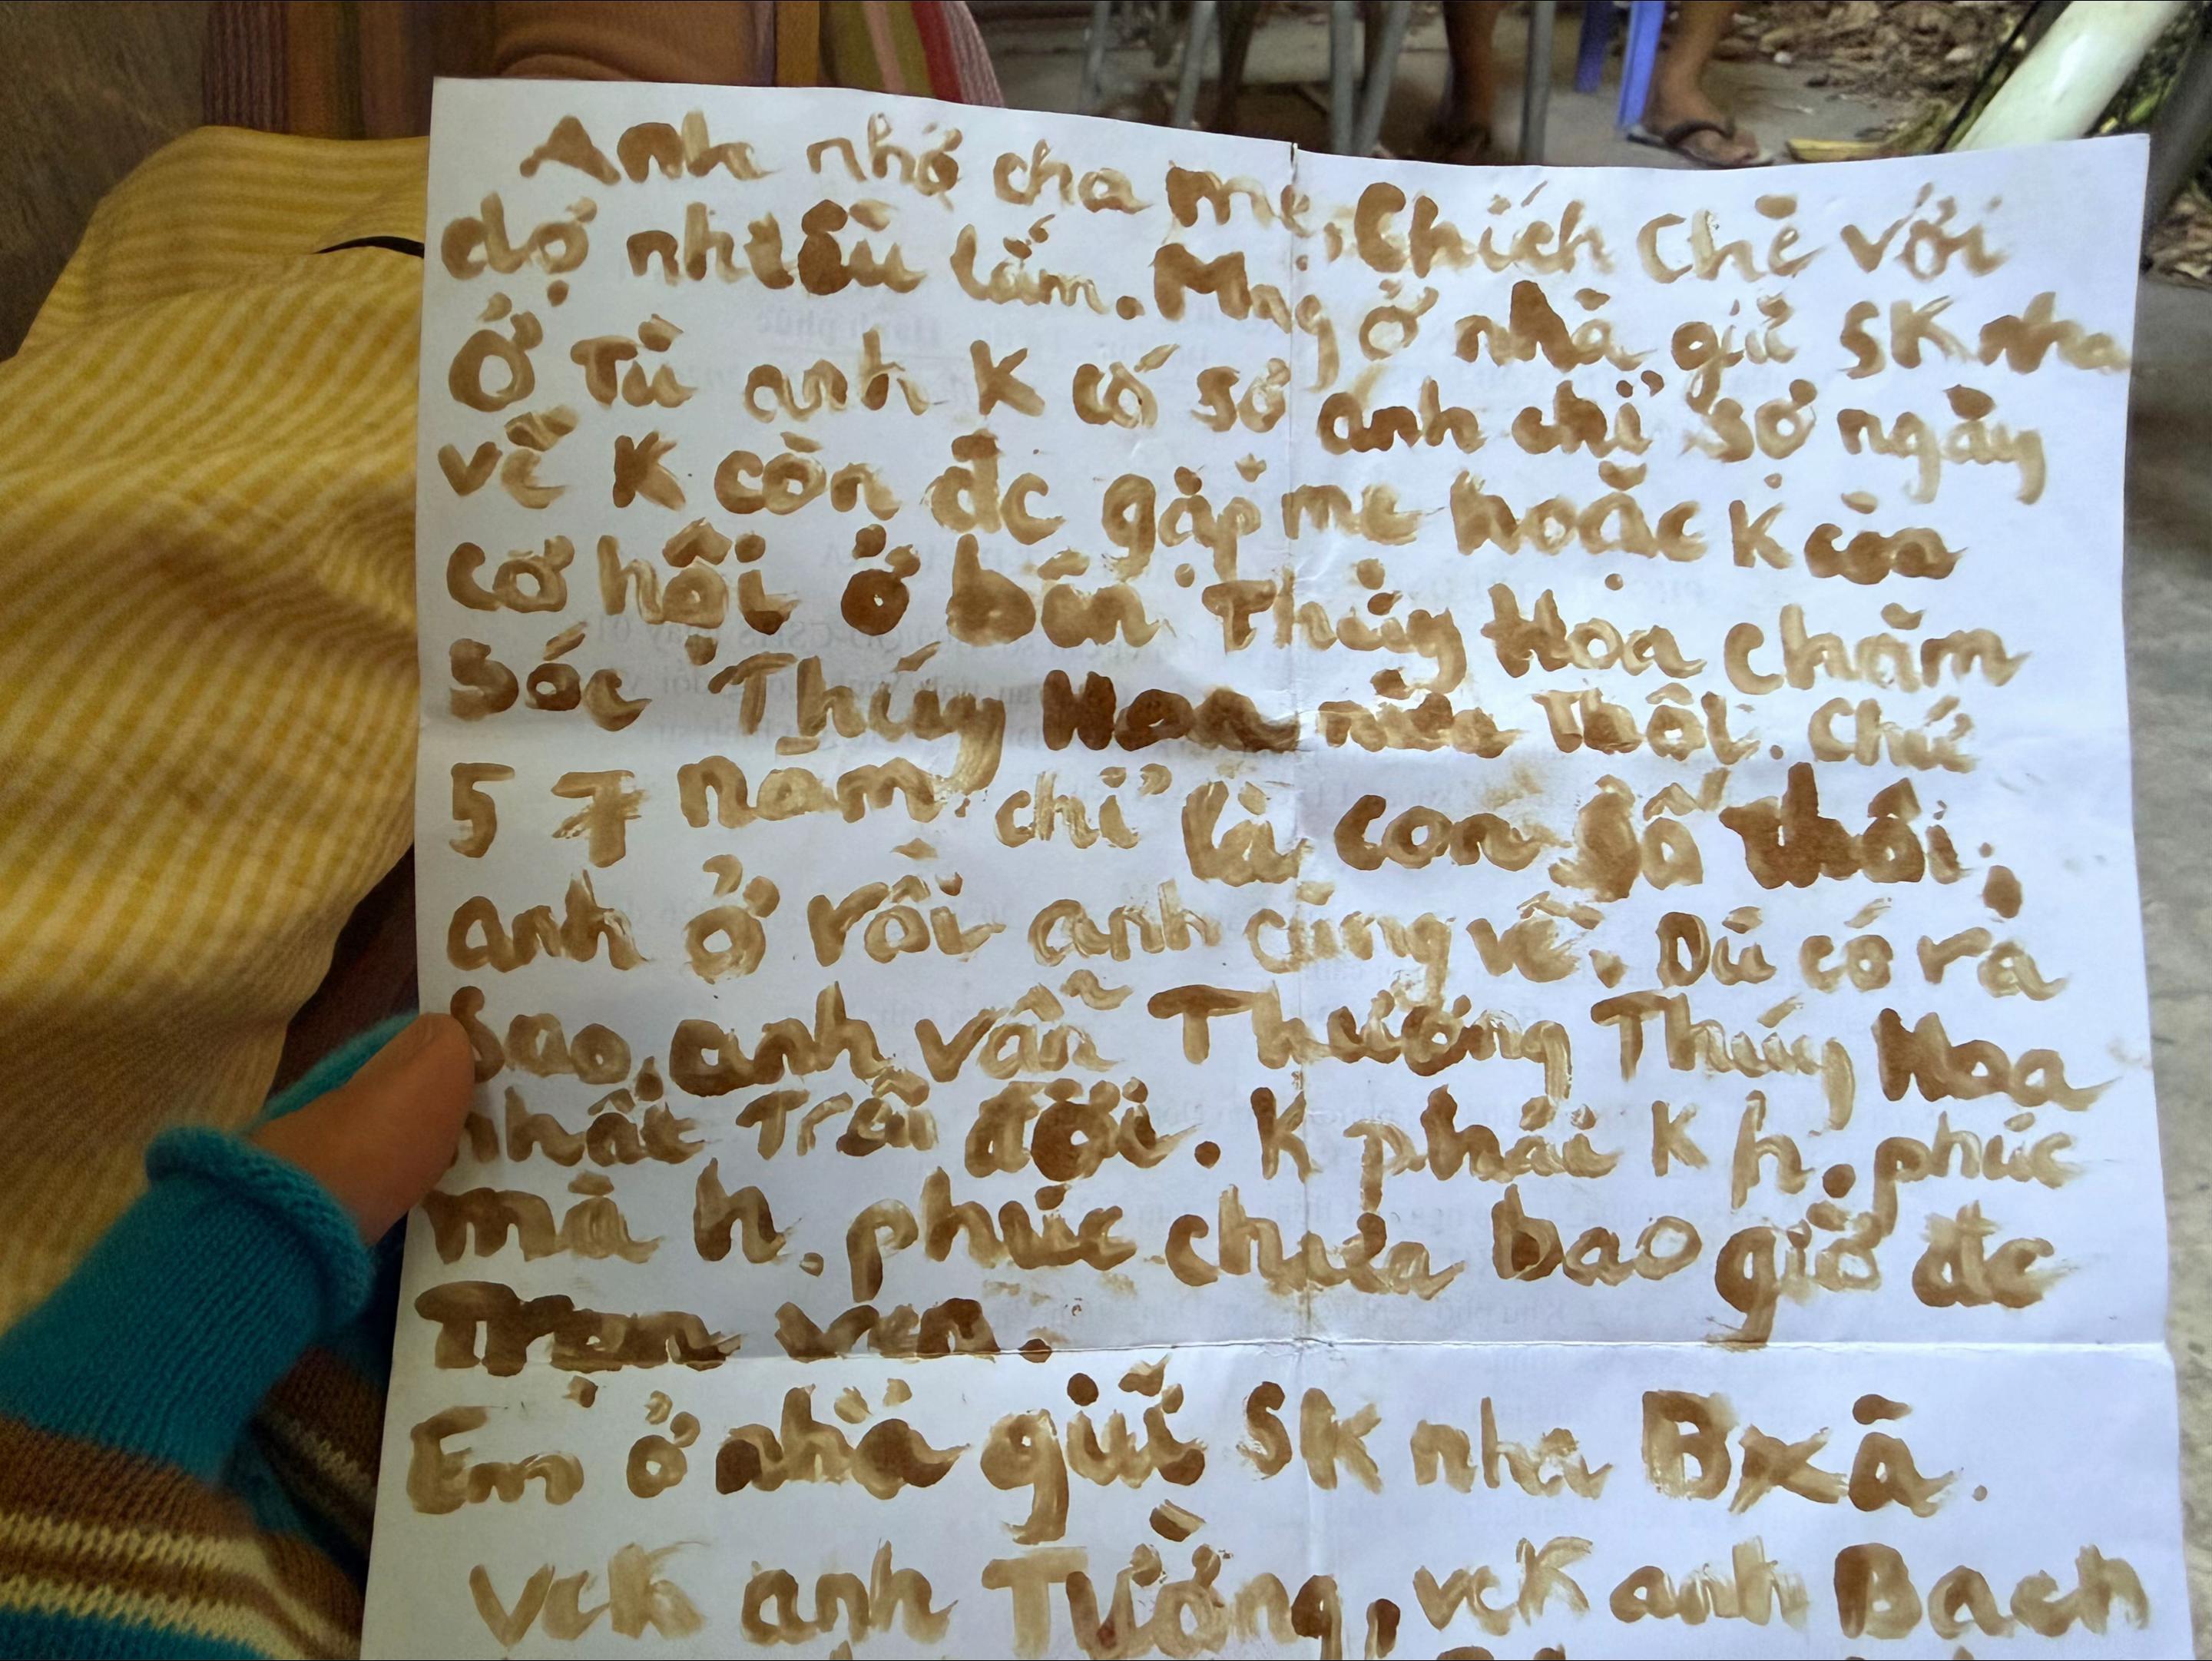 Anh nhớ cha mẹ, Chích Chè với
dợ nhiều lắm. Mng ở nhà giữ SK nha
Ở Tù anh K có sợ anh chỉ sợ ngày
về K còn đc gặp mẹ hoặc K còn
cơ hội ở bên Thúy Hoa chăm
Sóc Thúy Hoa nữa Thôi. Chứ
5 7 năm chỉ là con số thôi,
anh ở rồi anh cũng về. Dù có ra
Sao, anh vẫn Thương Thúy Hoa
nhất Trên đời. K phải K h. phúc
mà h. phúc chưa bao giờ đc
Trọn vẹn.
Em ở nhà giữ SK nha Bxã.
vck anh Tường, vck anh Bach